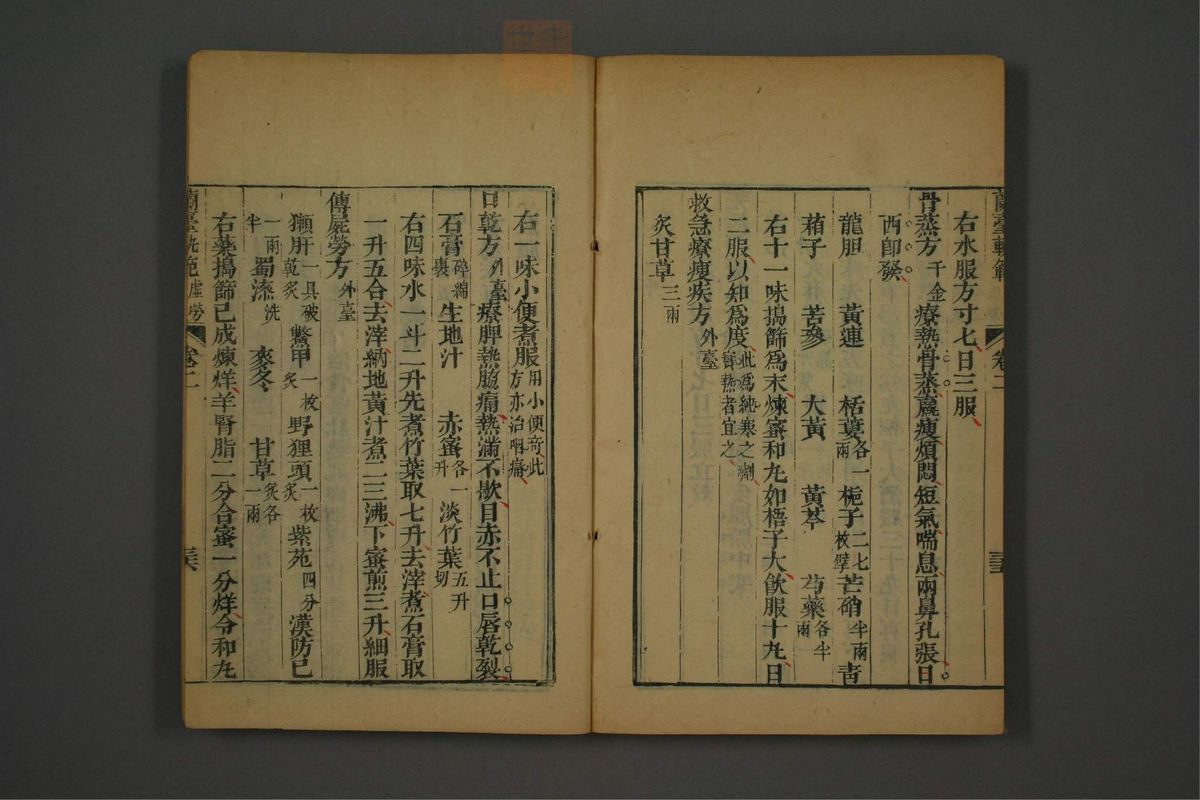 蘭臺軌範 卷二
右水服方寸七日三服
骨蒸方千金療熱骨蒸羸瘦煩悶短氣喘息兩鼻孔張日
西卽發
龍胆 黃連 栝蔞各一兩梔子二七枚擘芒硝半兩青
葙子 苦參 大黃 黃芩 芍藥各半兩
右十一味搗篩為末煉蜜和丸如梧子大飲服十丸日
二服以知爲度此爲純寒之劑實熱者宜之
救急療瘦疾方外臺
炙甘草三兩
右一味小便煮服用小便奇此方亦治咽痛
口乾方外臺療脾熱脇痛熱滿不歇目赤不止口唇乾裂
石膏碎綿裹 生地汁 赤蜜各一升淡竹葉五升切
右四味水一斗二升先煮竹葉取七升去滓煮石膏取
一升五合去滓納地黃汁煮二三沸下蜜煎三升細服
傳屍勞方外臺
獺肝一具破乾炙鱉甲一枚炙野狸頭一枚炙紫苑四分漢防已
一兩半 蜀漆洗 麥冬 甘草炙各一兩
右藥搗篩已成煉烊羊腎脂二分合蜜一分烊令和丸
蘭臺軌範虛勞 卷二